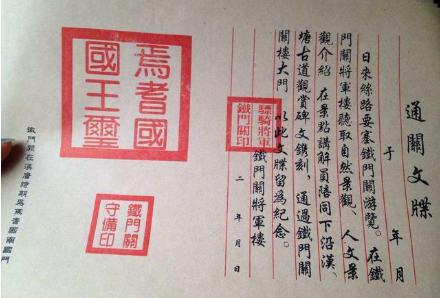 通關文牒
于 年 月
日來絲路要塞鐵門關游覽。在鐵
門關將軍樓聽取自然景觀、人文景
觀介紹 在景點講解員陪同下沿漢、
塘古道觀賞碑文鐫刻，通過鐵門關
關樓大門 以此文牒留為紀念。
驃騎將軍
鐵門關印
鐵門關將軍樓
二 年 月 日
焉耆國
國王璽
鐵門關
守備印
鐵門關在漢唐時期為焉耆國南國門